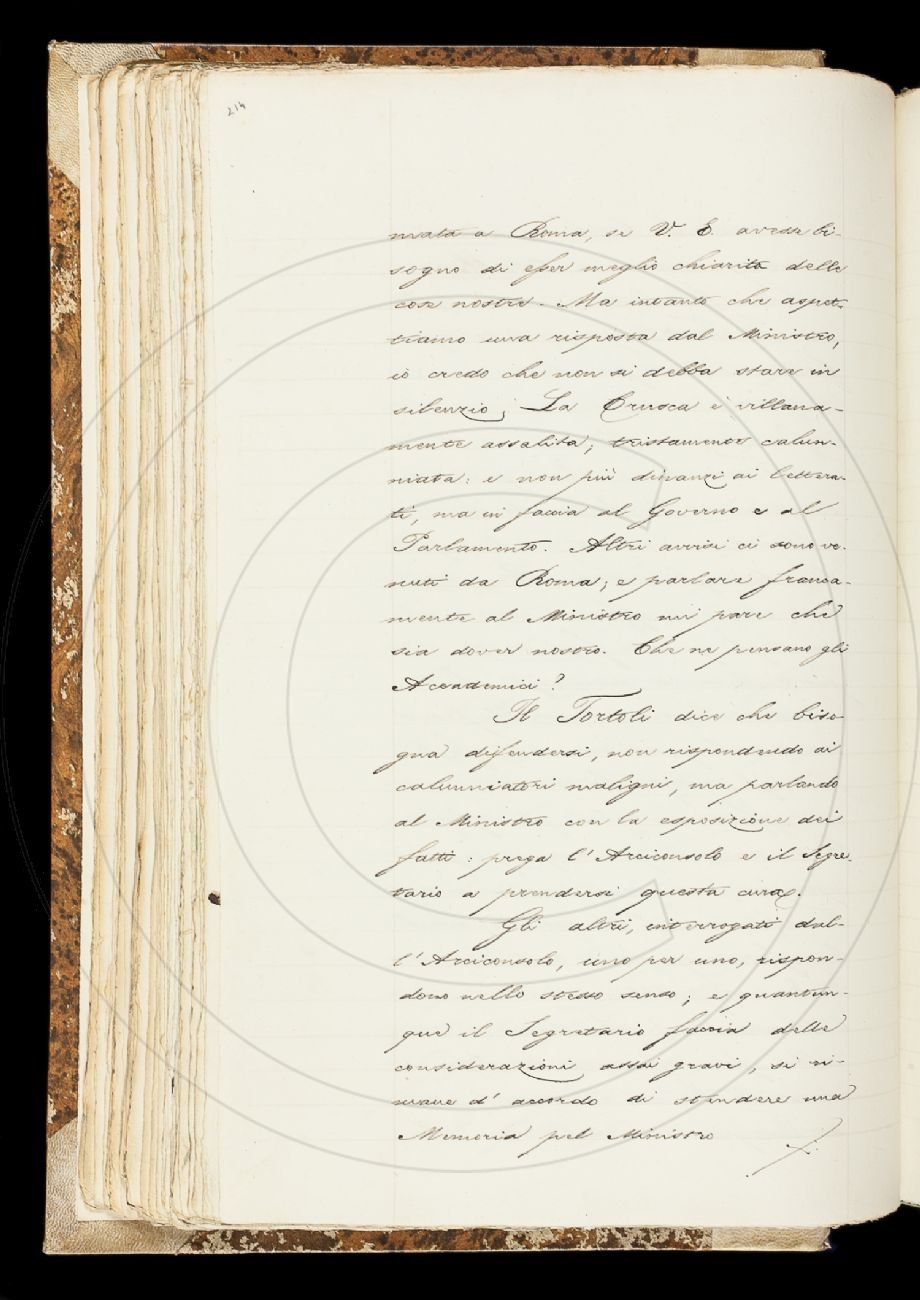 214
mata a Roma, se V. E. avesse bi-
sogno di esser meglio chiarita delle
cose nostre. Ma intanto che aspet-
tiamo una risposta dal Ministro,
io credo che non si debba stare in
silenzio; La Crusca è villana-
mente assalita; tristamente calun-
niata: e non più dinanzi ai lettera-
ti, ma in faccia al Governo e al
Parlamento. Altri avvisi ci sono ve-
nuti da Roma; e parlare franca-
mente al Ministro mi pare che
sia dover nostro. Che ne pensano gli
Accademici?
Il Tortoli dice che biso-
gna difendersi, non rispondendo ai
calunniatori maligni, ma parlando
al Ministro con la esposizione dei
fatti: prega l'Arciconsolo e il Segre-
tario a prendersi questa cura.
Gli altri, interrogati dal-
l'Arciconsolo, uno per uno, rispon-
dono nello stesso senso; e quantun-
que il Segretario faccia delle
considerazioni assai gravi, si ri-
mane d'accordo di stendere una
Memoria pel Ministro